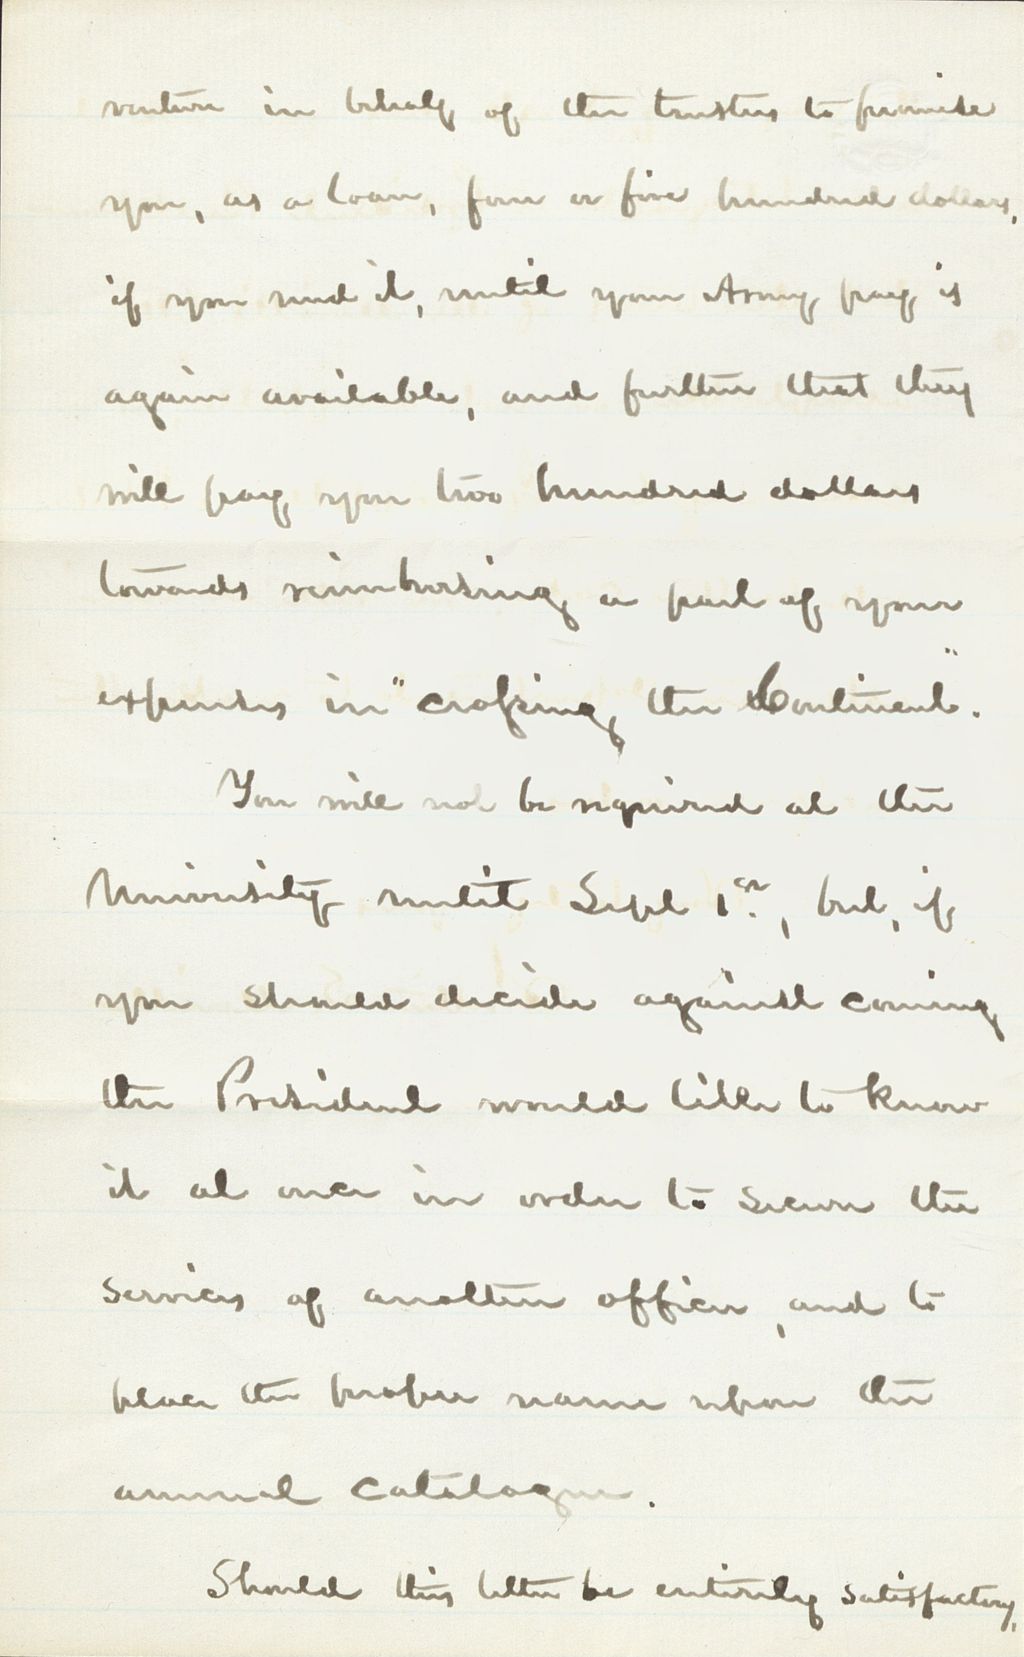 venture in behalf of the trustees to promise
you, as a loan, four or five hundred dollars,
if you need it, until your Army pay is
again available, and further that they
will pay you two hundred dollars
towards reimbursing a part of your
expenses in "crossing the Continent".
You will not be required at the
University until Sept 1st, but, if
you should decide against coming
the President would like to know
it at once in order to secure the
services of another officer, and to
place the proper name upon the
annual catalogue.
Should this letter be entirely satisfactory,